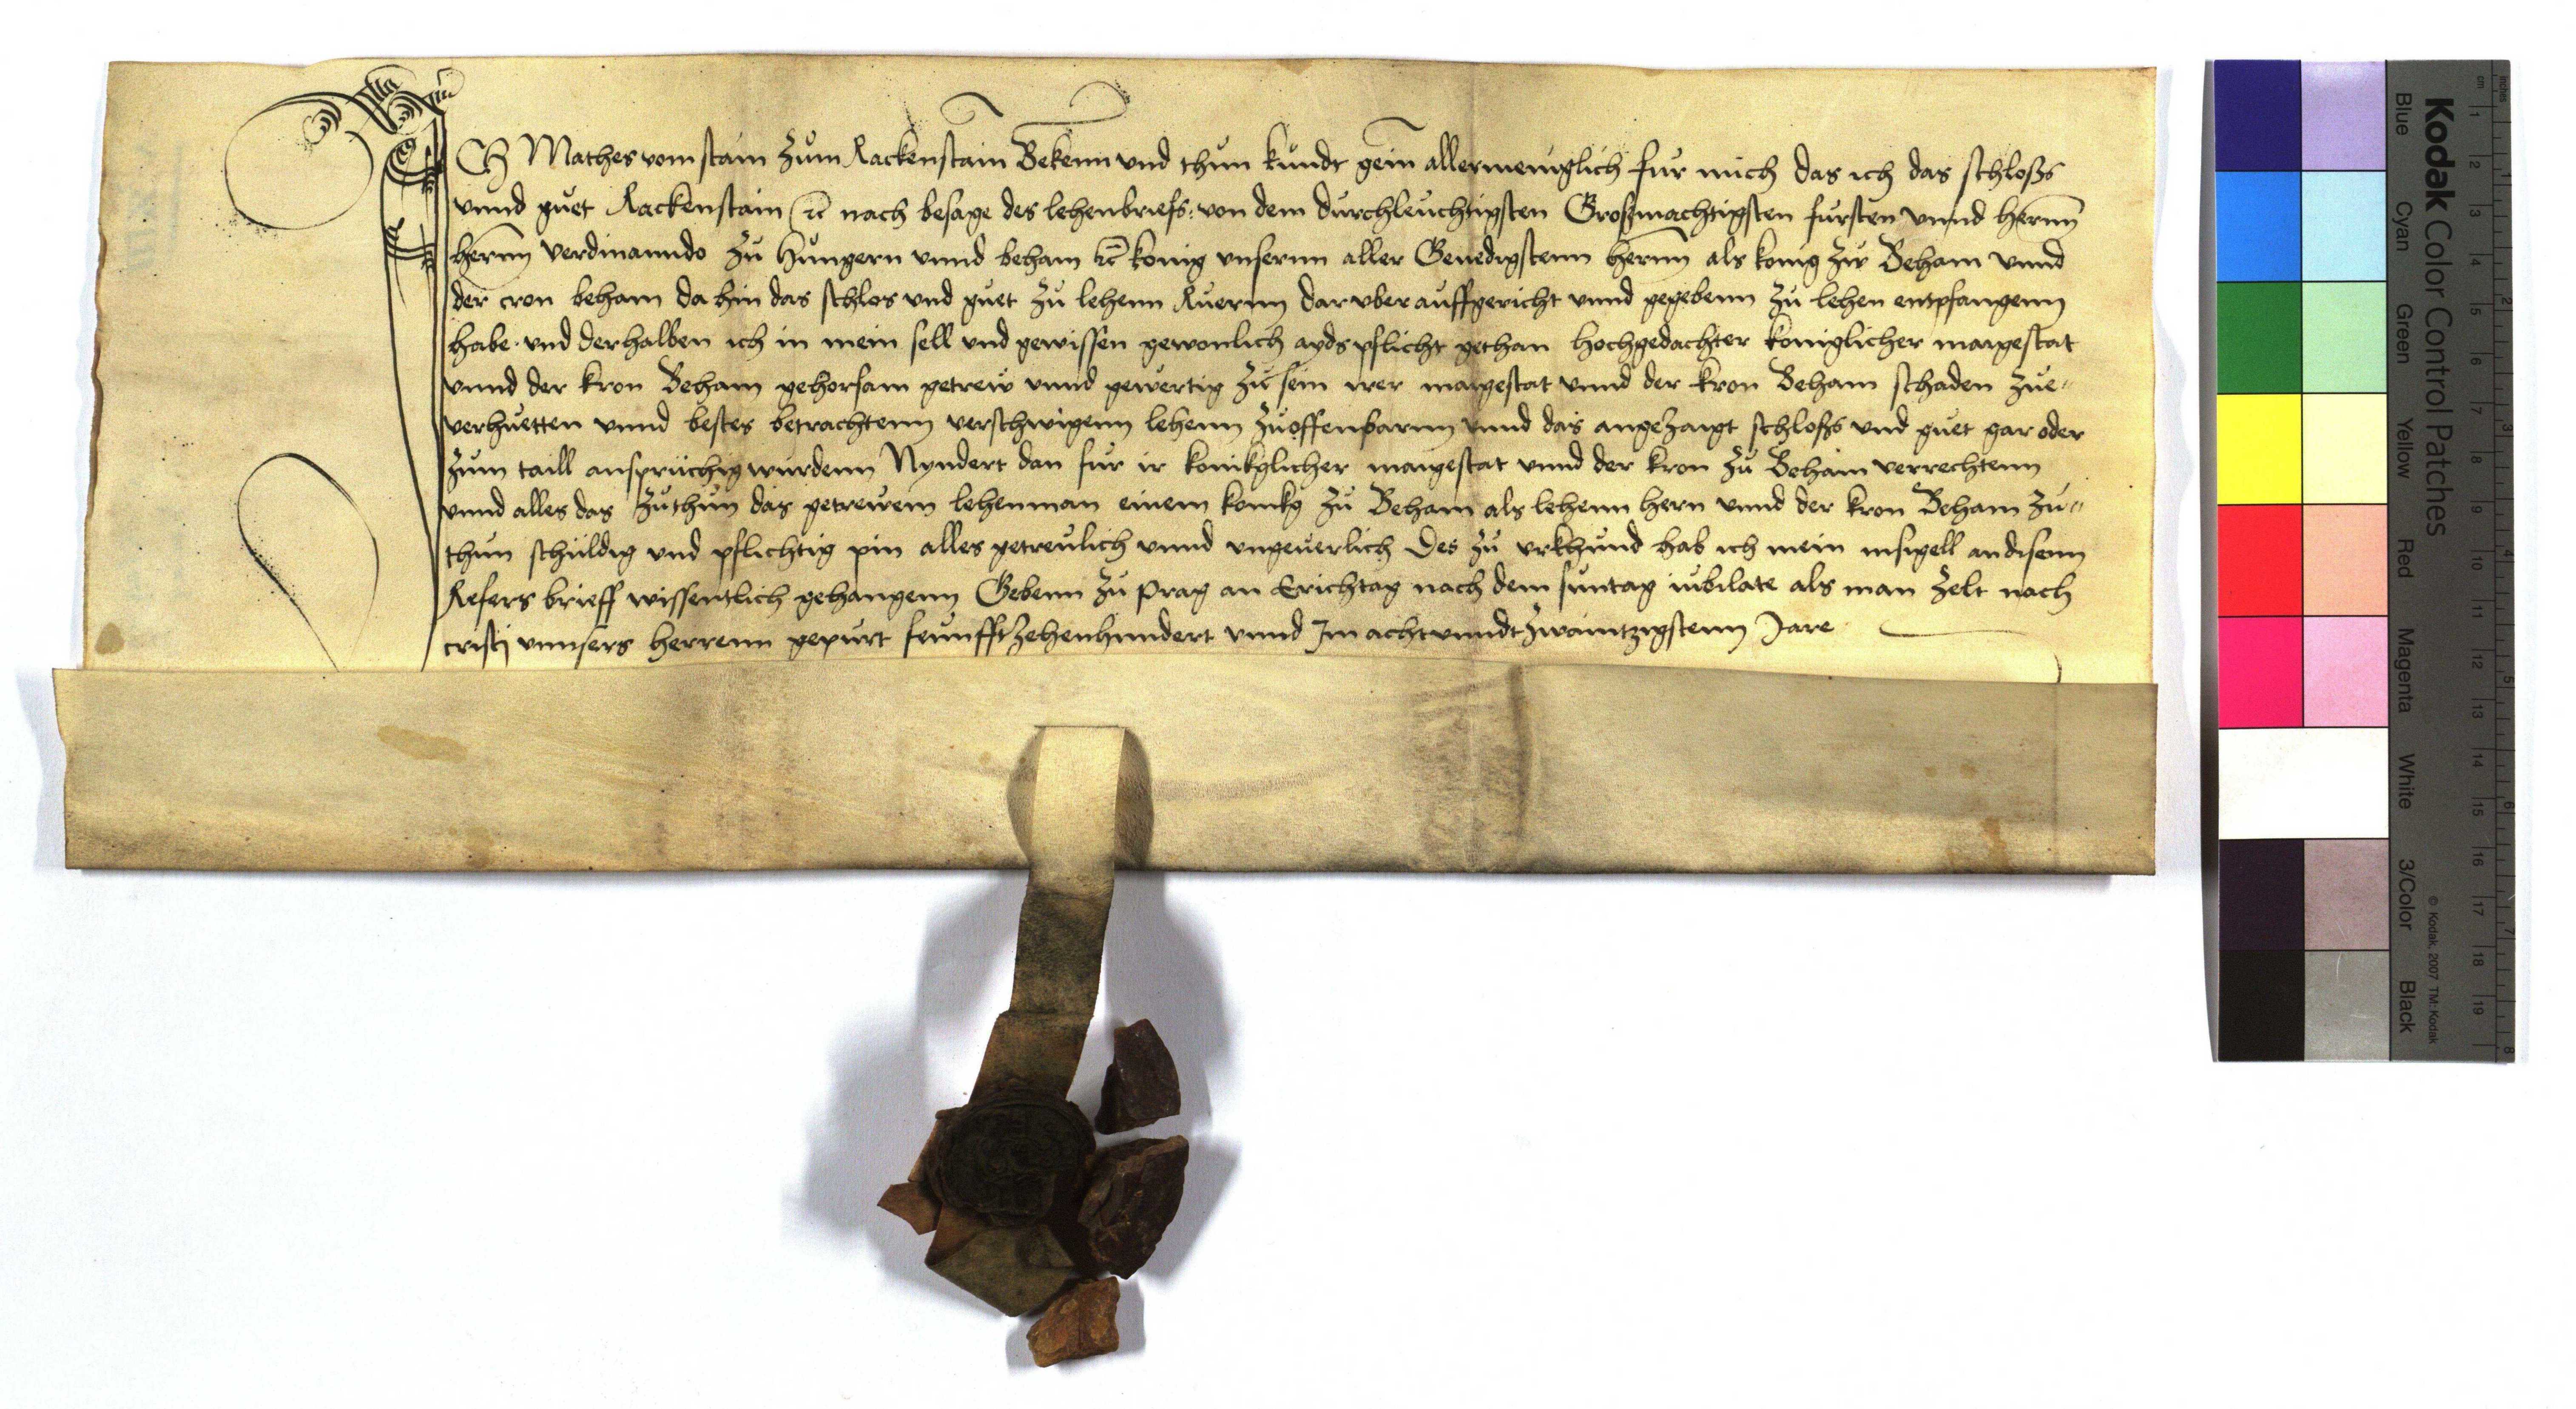 Ich Mathes vom stain zum Rackenstain Bekenn vnd thun kundt gein allermeniglich fur mich das ich das schloss
vnnd guet Rackenstain (etc nach besage des lehenbriefs: von dem durchleuchtigsten Grosmachtigsten fursten vnnd hernn
hernn verdinanndo zu Hungern vnnd beham etc konig vnsernn aller Genedigstenn hernn als konig zw Beham vnnd
der cron beham da hin das schlos vnd guet zu lehenn Ruernn dar vber auffgericht vnnd gegebenn zu lehen entpfangenn
habe. vnd derhalben ich in mein sell vnd gewissen gewonlich ayds pflicht gethan hochgedachter koniglicher maigestat
vnnd der kron Beham gehorsam getrew vnnd gewertig zu sein irer maigestat vnnd der kron Beham schaden zue"
verhuetten vnnd bestes betrachtenn verschwigenn lehenn zuoffenbarnn vnnd das angezaigt schloss vnd guet gar oder
zum taill ansprüchig wurdenn Nyndert dan fur ir konikglicher maigestat vnnd der kron zu Beham verrechtenn
vnnd alles das zuthun das getrewem lehenman einem konikg zu Beham als lehenn hern vnnd der kron Beham zu"
thun schuldig vnd pflichtig pin alles getreulich vnnd vngeuerlich Des zu vrkhund hab ich mein insigell an disenn
Refers brieff wissentlich gehangenn Gebenn zu Prag an Erichtag nach dem suntag iubilate als man zelt nach
cristi vnnsers herrenn gepurt feunfftzehenhundert vnnd Im acht vnndtzwaintzigstenn Jare
Kodak Color Control Patches
Blue Cyan Green Yellow Red Magenta White 3/Color Black
© Kodak, 2007 TM: Kodak
cm 1 2 3 4 5 6 7 8 9 10 11 12 13 14 15 16 17 18 19
inches 1 2 3 4 5 6 7 8